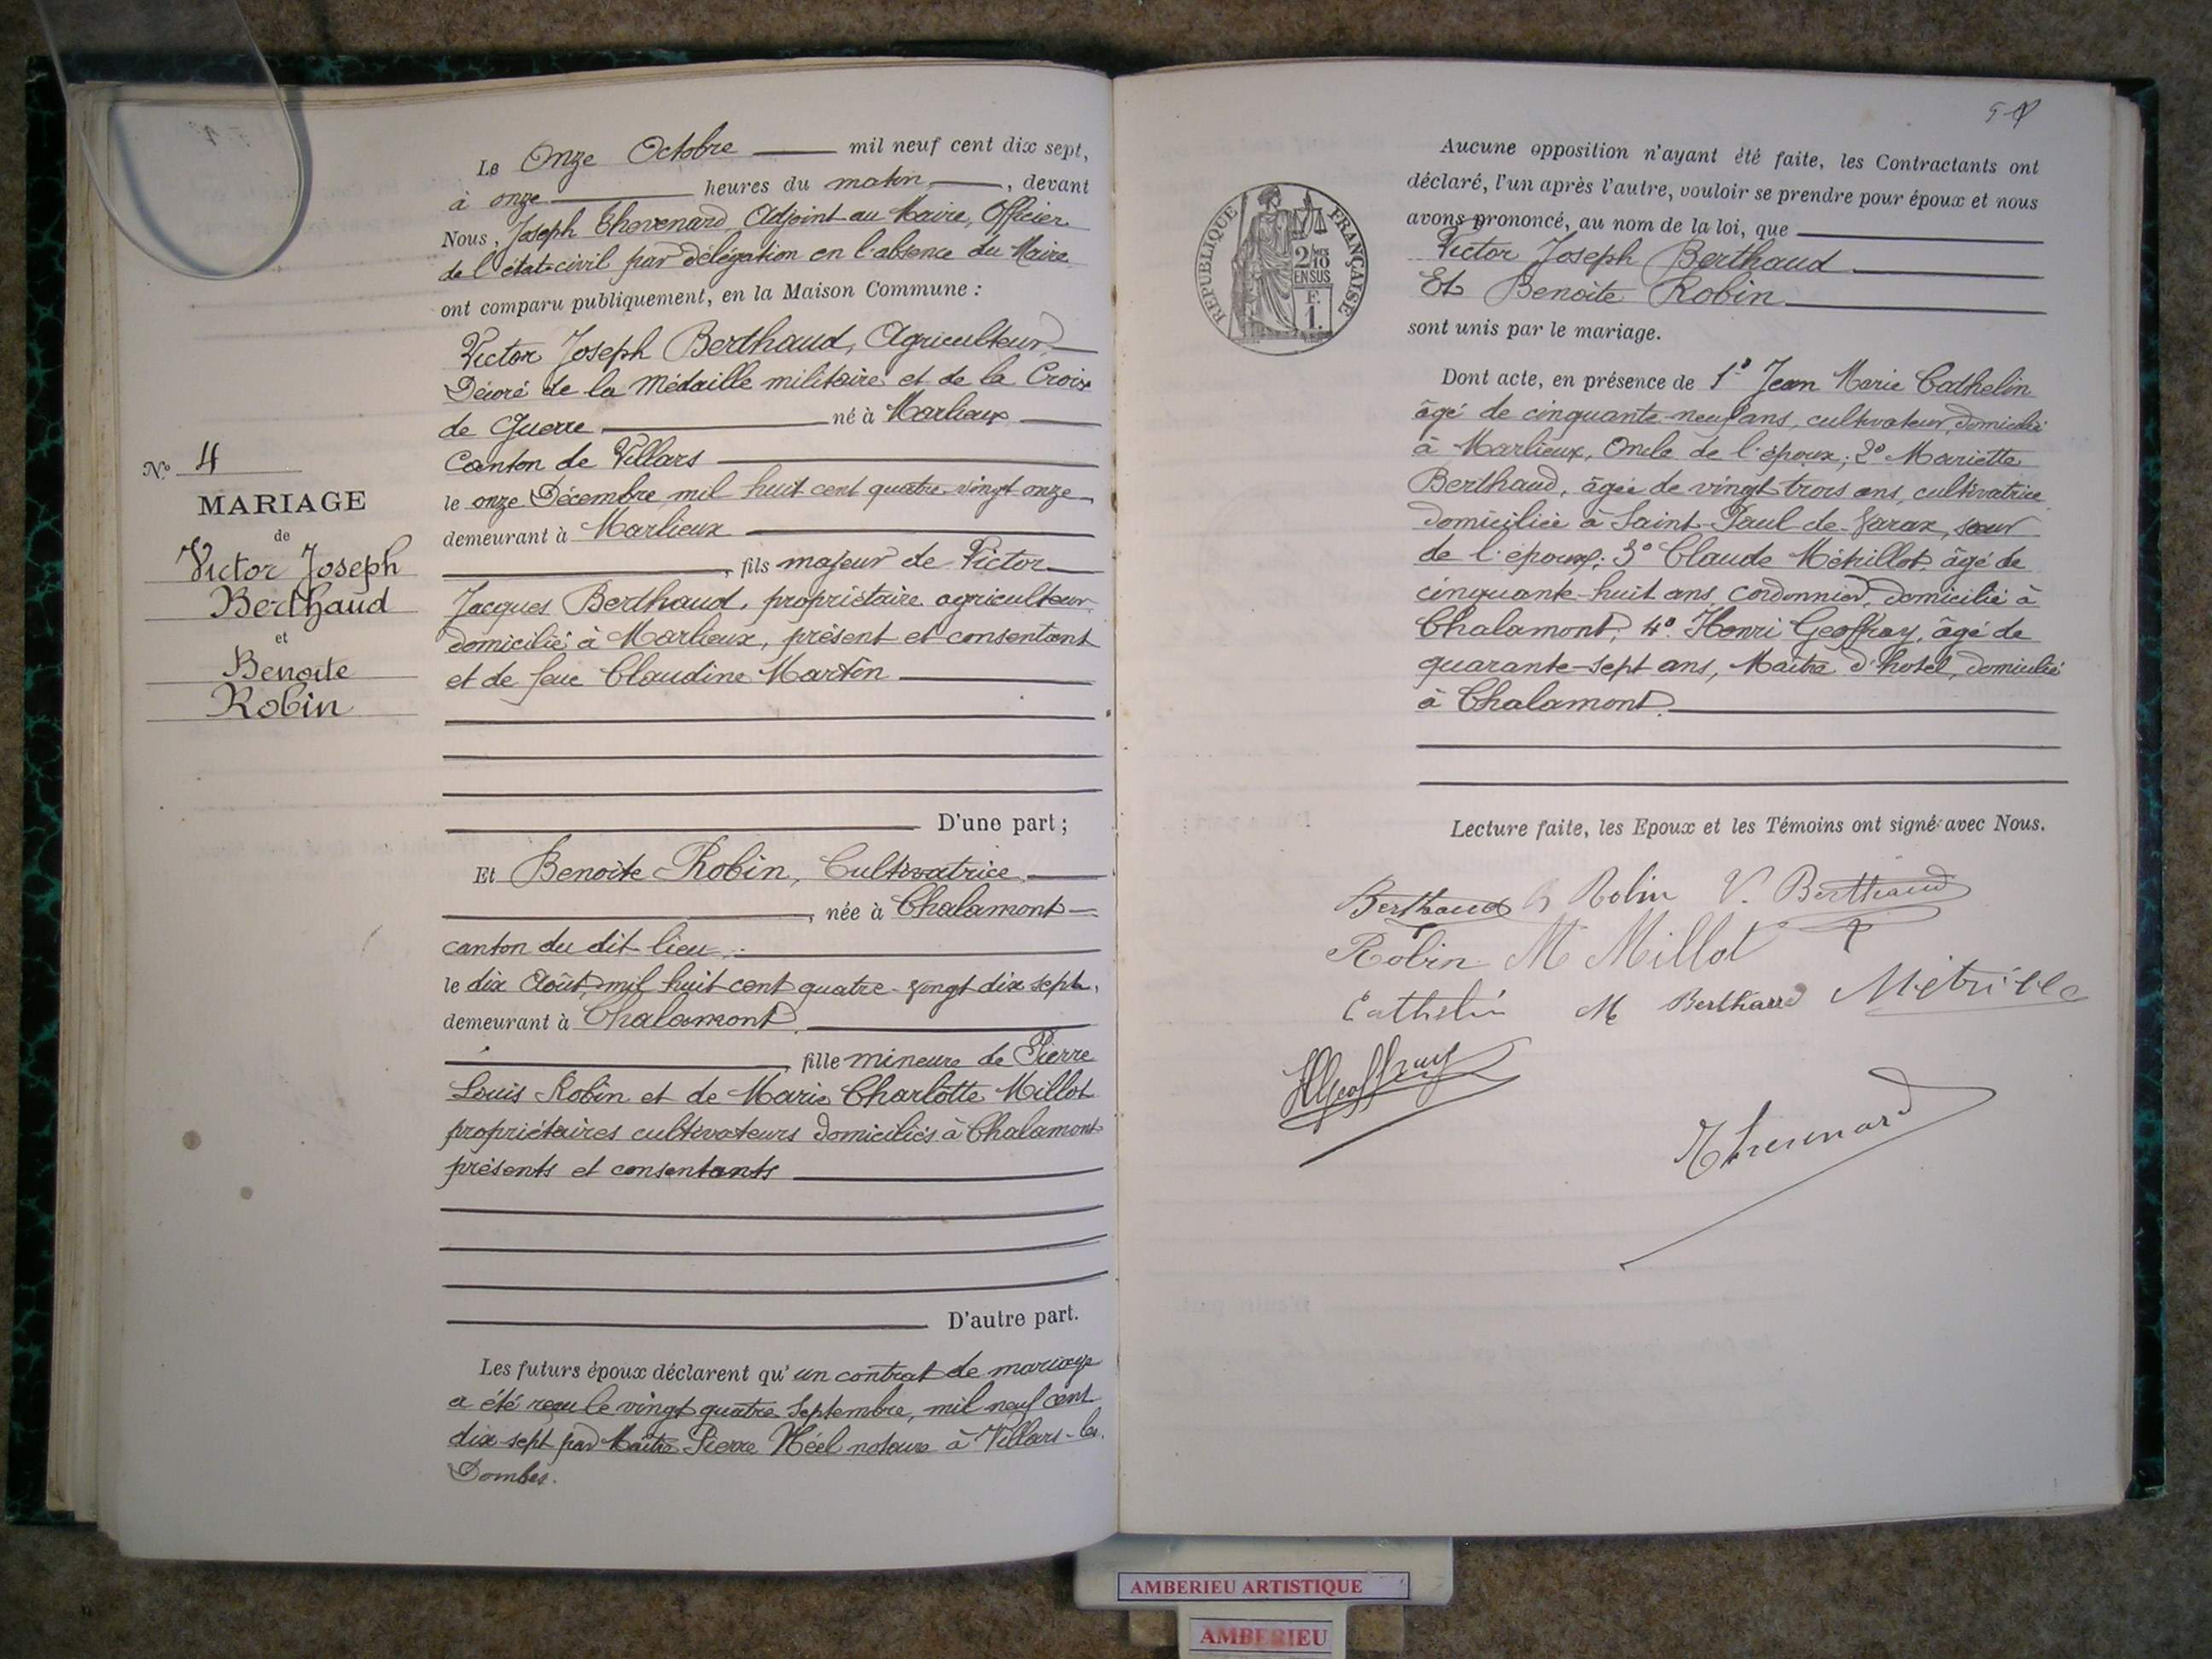 Le Onze Octobre mil neuf cent dix sept,
à onze heures du matin, devant
Nous, Joseph Thevenard Adjoint au Maire, Officier
de l'état-civil par délégation en l'absence du Maire
ont comparu publiquement, en la Maison Commune :
Victor Joseph Berthaud, Agriculteur,
Décoré de la Médaille militaire et de la Croix
de Guerre né à Marlieux
Canton de Villars
le onze Décembre mil huit cent quatre-vingt onze
demeurant à Marlieux
, fils majeur de Victor
Jacques Berthaud, propriétaire agriculteur,
domicilié à Marlieux, présent et consentant
et de feue Claudine Martin
D'une part ;
Nº 4
MARIAGE
de
Victor Joseph
Berthaud
et
Benoite
Robin
Et Benoite Robin, Cultivatrice
, née à Chalamont
canton du dit lieu
le dix Août mil huit cent quatre-vingt dix sept,
demeurant à Chalamont
, fille mineure de Pierre
Louis Robin et de Marie Charlotte Millot
propriétaires cultivateurs domiciliés à Chalamont
présents et consentants
D'autre part.
Les futurs époux déclarent qu'un contrat de mariage
a été reçu le vingt quatre Septembre, mil neuf cent
dix-sept par Maître Pierre notaire à Villars-les-
Dombes.
Aucune opposition n'ayant été faite, les Contractants ont
déclaré, l'un après l'autre, vouloir se prendre pour époux et nous
avons prononcé, au nom de la loi, que
Victor Joseph Berthaud
Et Benoite Robin
sont unis par le mariage.
REPUBLIQUE FRANÇAISE
2/10
EN SUS
F.
1.
Dont acte, en présence de 1º Jean Marie Cathelin
âgé de cinquante-neuf ans, cultivateur, domicilié
à Marlieux, Oncle de l'époux; 2º Mariette
Berthaud, âgée de vingt trois ans, cultivatrice
domiciliée à Saint-Paul-de-Varax, sœur
de l'époux; 3º Claude Métrillot, âgé de
cinquante-huit ans, cordonnier, domicilié à
Chalamont; 4º Henri Geoffray, âgé de
quarante-sept ans, Maître d'hotel, domicilié
à Chalamont.
Lecture faite, les Epoux et les Témoins ont signé avec Nous.
Berthaud B Robin V. Berthaud
Robin M Millot
Cathelin M Berthaud
HGeoffray
Thevenard
AMBERIEU ARTISTIQUE
AMBERIEU